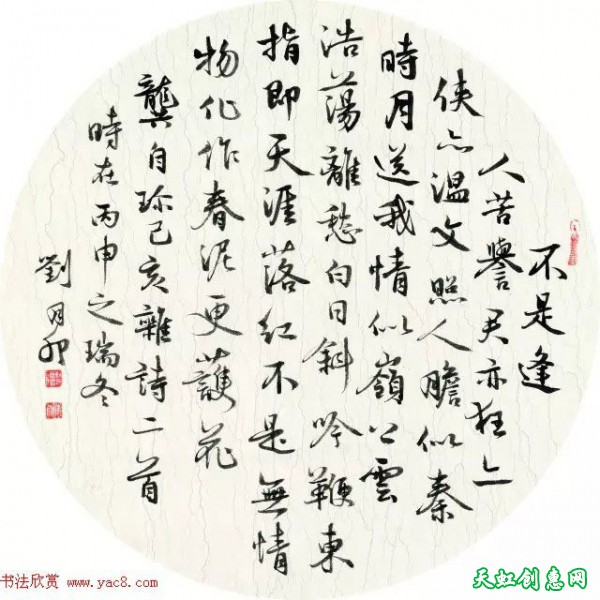 不是逢
人苦譽君亦狂亦
俠亦温文照人膽似秦
時月送我情似嶺上雲
浩蕩離愁白日斜吟鞭東
指即天涯落紅不是無情
物化作春泥更護花
龔自珍己亥雜詩二首
時在丙申之瑞冬
劉月卯
书法欣赏 www.yac8.com
天虹创惠网